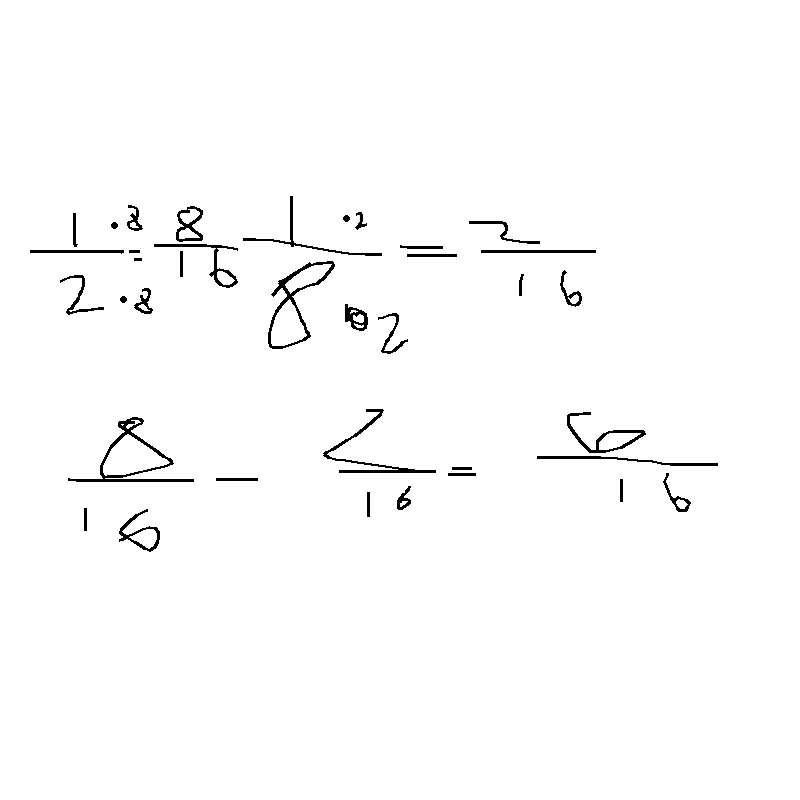 1·8/2·8 = 8/16 1·2/8·2 = 2/16
8/16 - 2/16 = 6/16